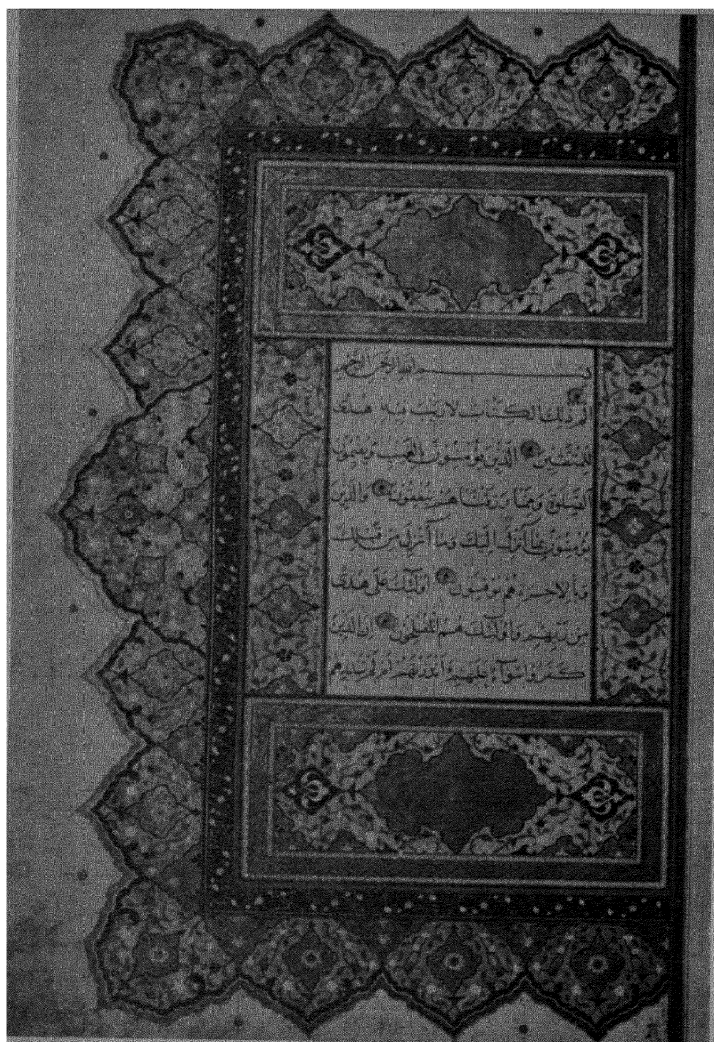 بسم الله الرحمن الرحيم
الم ذلك الكتاب لا ريب فيه هدى
للمتقين الذين يؤمنون بالغيب ويقيمون
الصلوة ومما رزقناهم ينفقون والذين
يؤمنون بما انزل اليك وما انزل من قبلك
وبالاخرة هم يوقنون اولئك على هدى
من ربهم واولئك هم المفلحون ان الذين
كفروا سواء عليهم ءانذرتهم ام لم تنذرهم